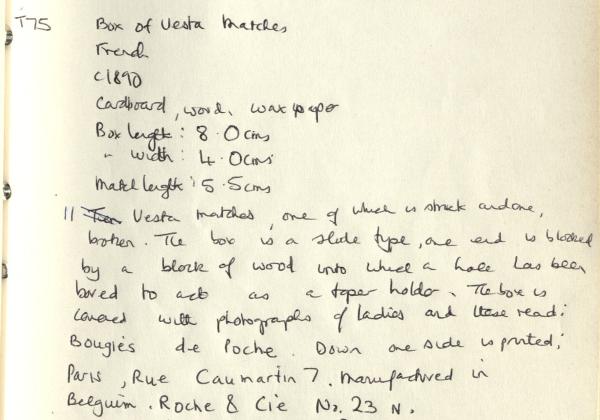 T75 Box of Vesta Matches
French
c1890
Cardboard, wood, wax paper
Box length: 8.0cms
" width: 4.0cms
Match length: 5.5cms
11 Ten Vesta matches, one of which is struck and one,
broken. The box is a slide type, one end is blocked
by a block of wood into which a hole has been
bored to act as a taper holder. The box is
covered with photographs of ladies and these read:
Bougies de Poche. Down one side is printed;
Paris, Rue Caumartin 7. Manufactured in
Belguim. Roche & Cie No. 23 N.